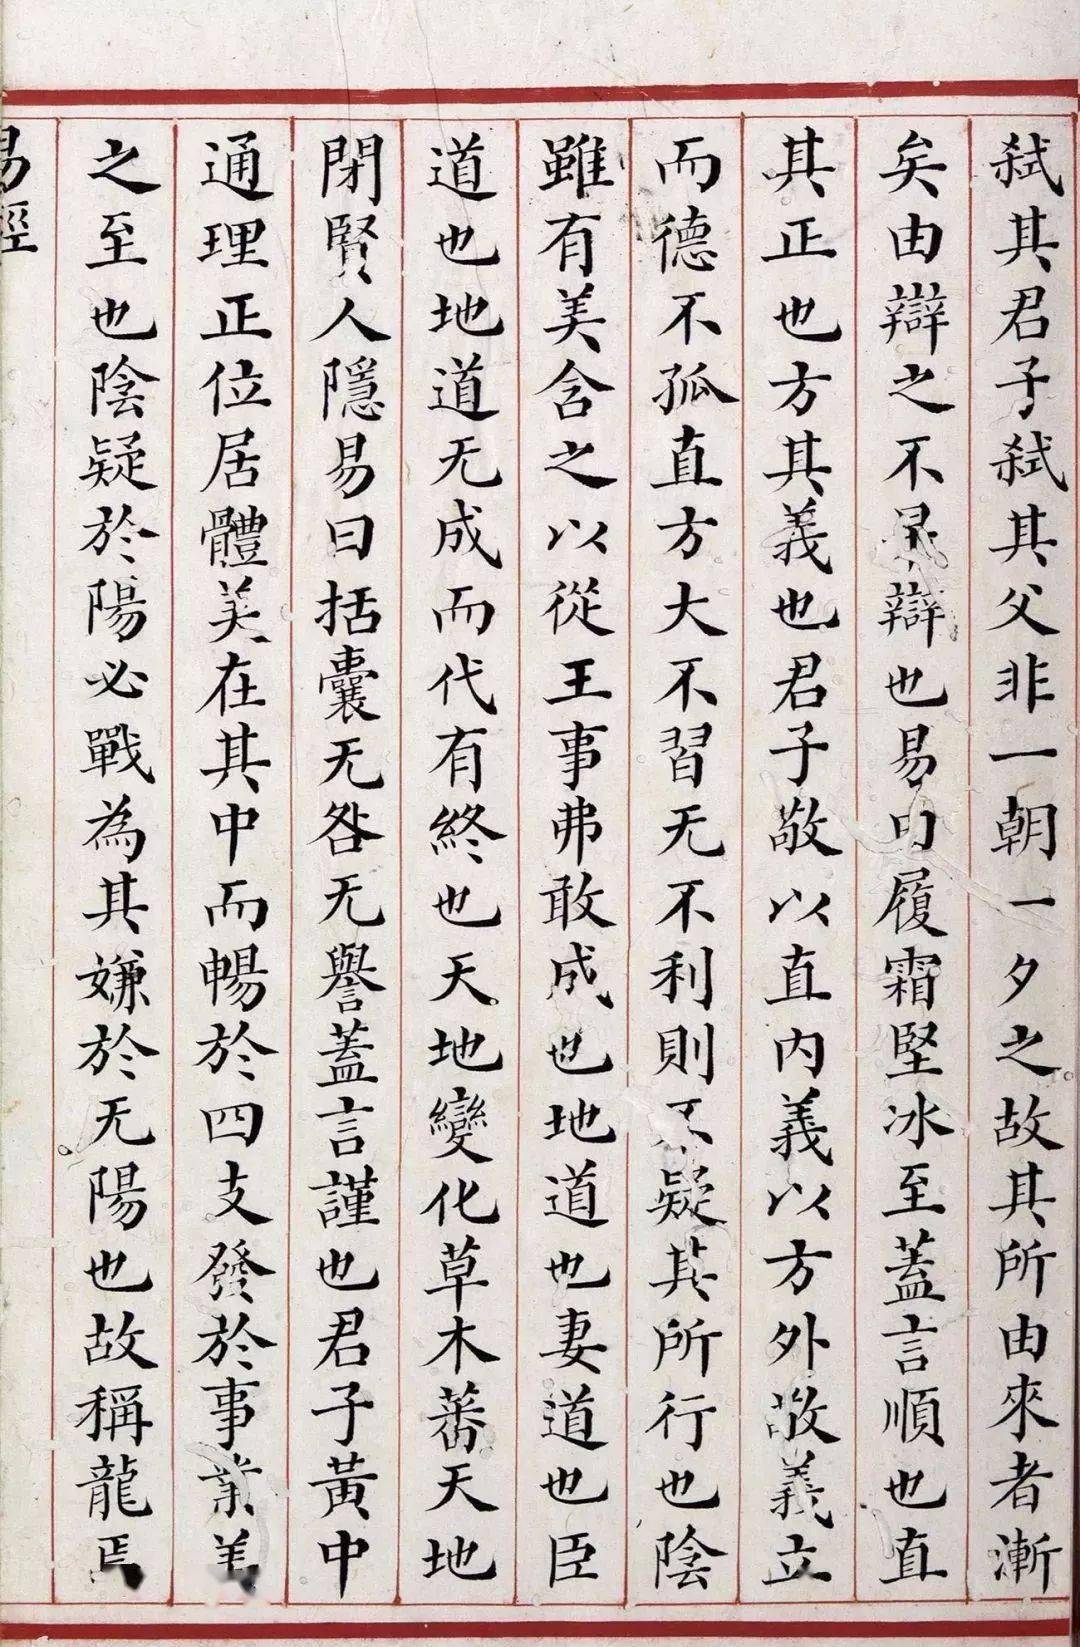 弒其君子弒其父非一朝一夕之故其所由來者漸
矣由辯之不早辯也易曰履霜堅冰至蓋言順也直
其正也方其義也君子敬以直內義以方外敬義立
而德不孤直方大不習无不利則不疑其所行也陰
雖有美含之以從王事弗敢成也地道也妻道也臣
道也地道无成而代有終也天地變化草木蕃天地
閉賢人隱易曰括囊无咎无譽蓋言謹也君子黃中
通理正位居體美在其中而暢於四支發於事業美
之至也陰疑於陽必戰為其嫌於无陽也故稱龍焉
易經